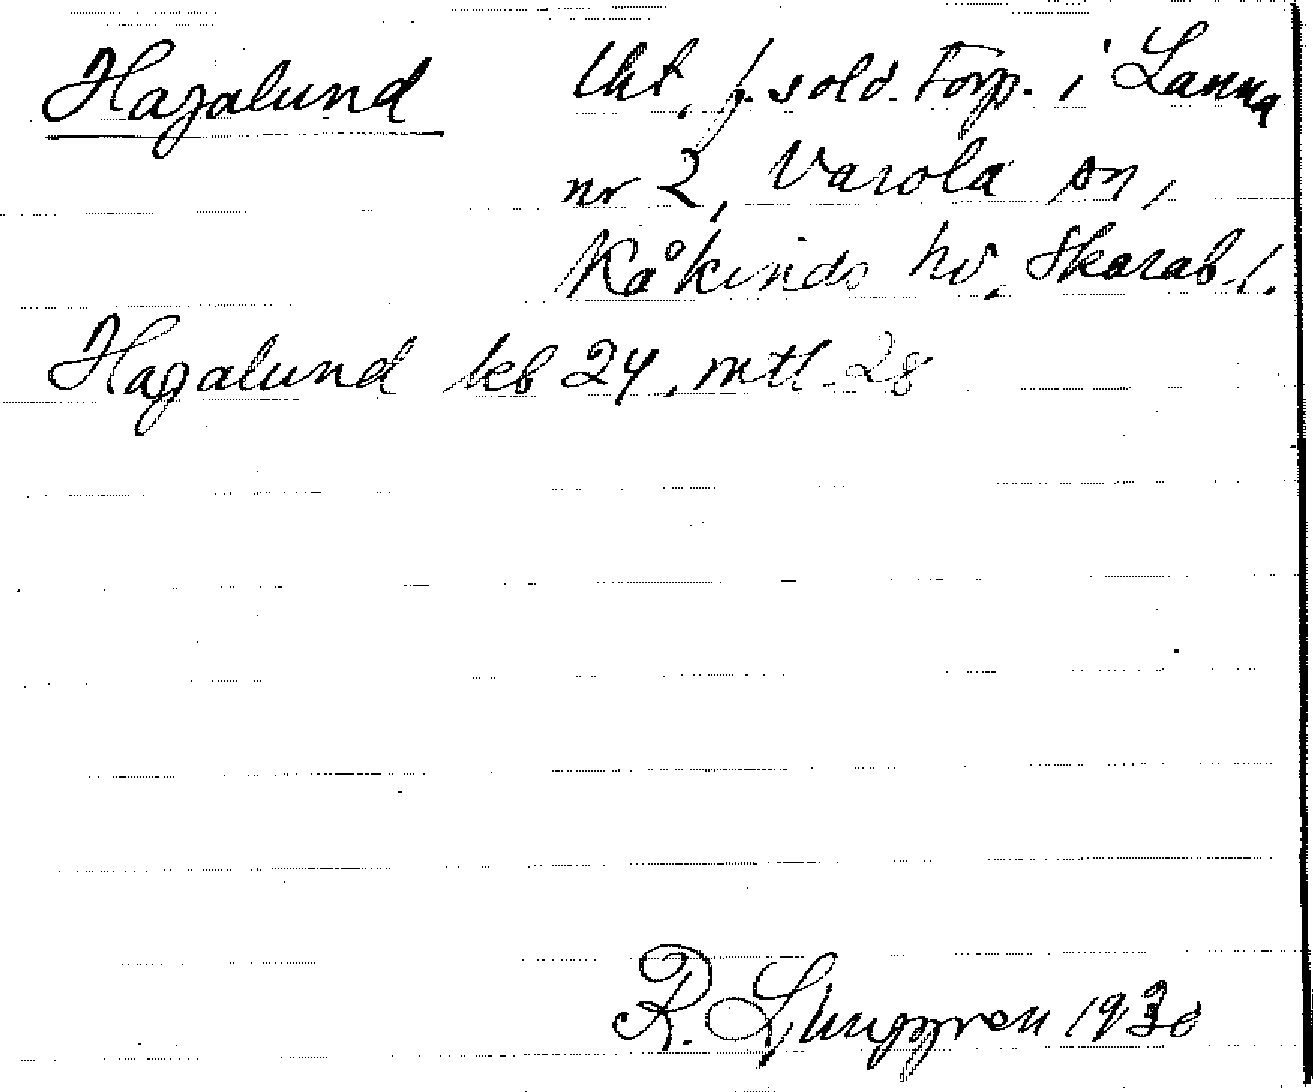 Hagalund Lht, f. sold. torp. i Lanna
nr 2, Varola sn,
Kåkinds hd. Skarab. l.
Hagalund kb 24, mtl. 28
R. Ljunggren 1930